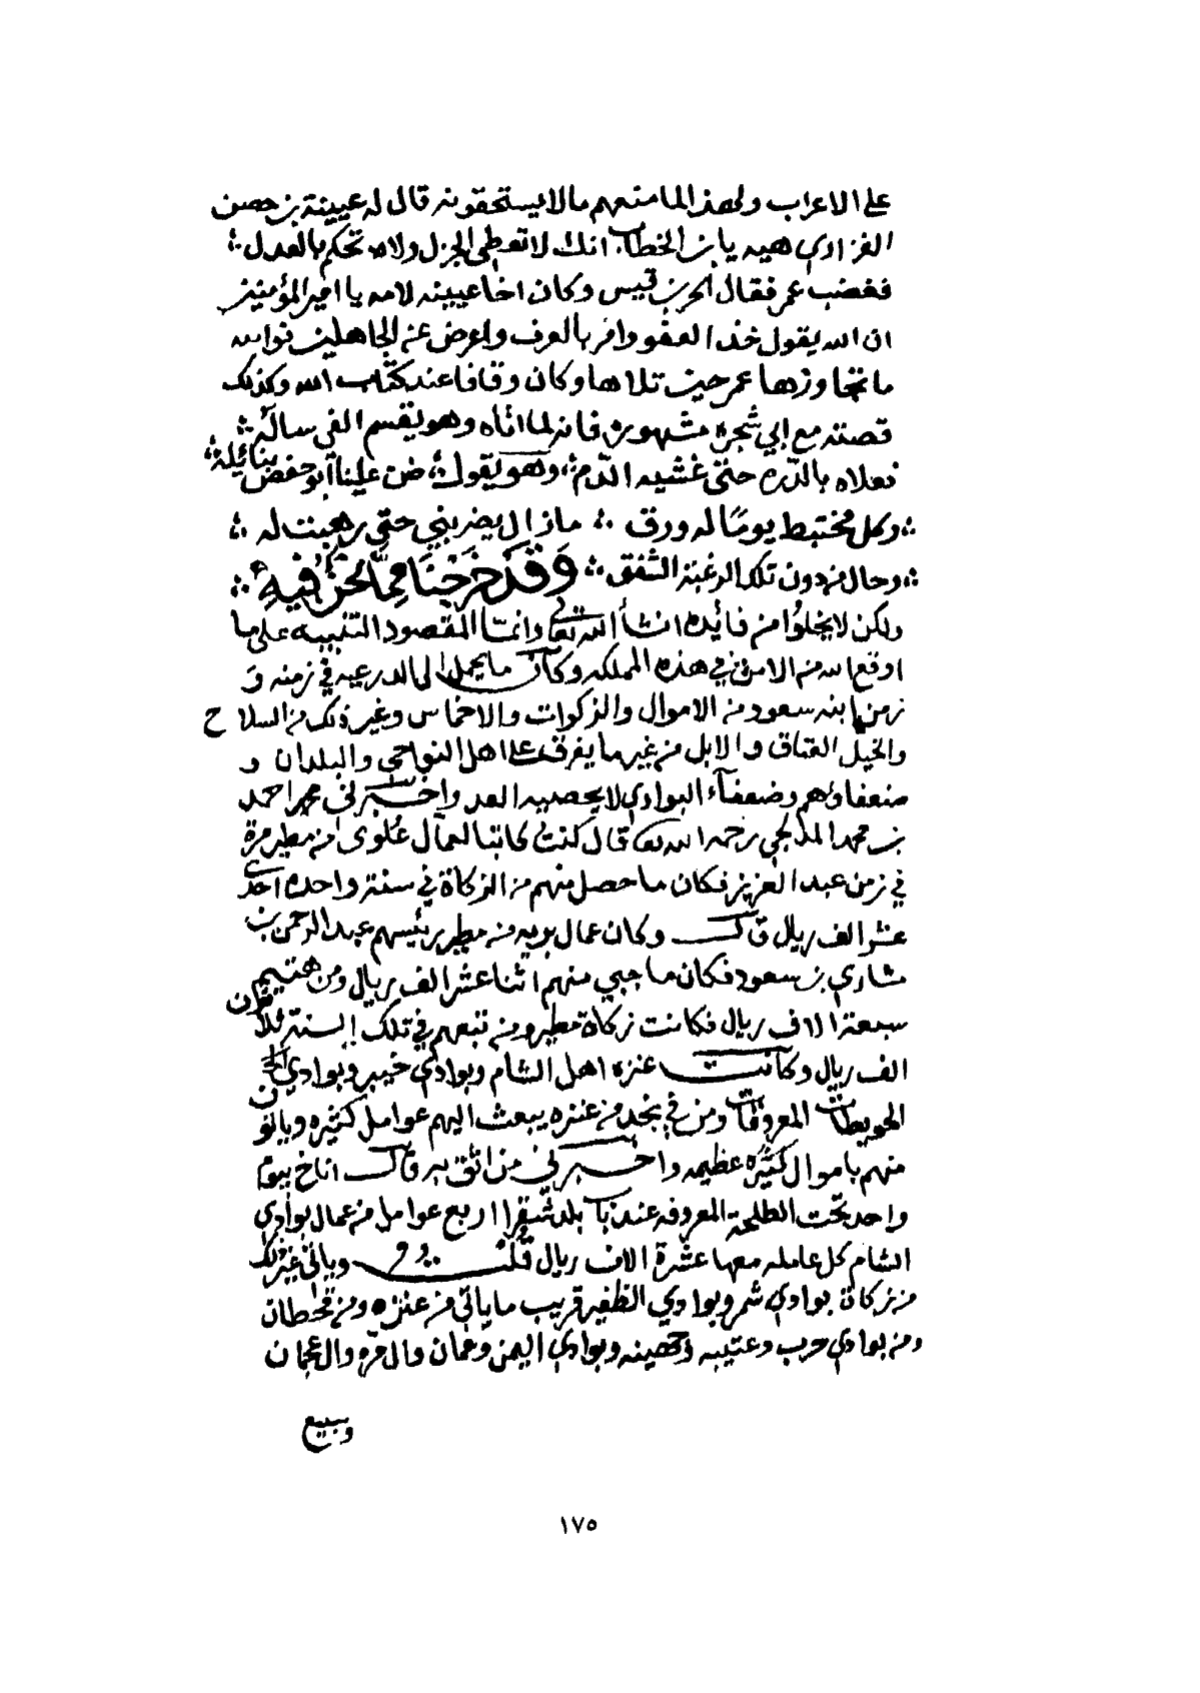 على الاعراب ولهذا لما منعهم مالا يستحقونه قال له عيينة بن حصن
الفزاري هيه يا بن الخطاب انك لا تعطي الجزل ولا تحكم بالعدل
فغضب عمر فقال الحر بن قيس وكان اخا عيينه لامه يا امير المؤمنين
ان الله يقول خذ العفو وامر بالعرف واعرض عن الجاهلين فوالله
ما تجاوزها عمر حين تلاها وكان وقافا عند كتاب الله وكذلك
قصته مع ابي شجره مشهوره فانه لما اتاه وهو يقسم الفي ساله
فعلاه بالدره حتى غشيه الدم وهو يقول ضن علينا ابو حفص بنائله
وكل مختبط يومًا له ورق ما زال يضربني حتى رهبت له
وحال من دون تلك الرغبة الشفق وَقَدْ خَرَجْنَا مِمَّا نَحْنُ فِيهِ
ولكن لا يخلوا من فائده انشأ الله تعالى وانما المقصود التنبيه على ما
اوقع الله من الامن في هذه المملكه وكان ما يحمل الى الدرعيه في زمنه وَ
زمن ابنه سعود من الاموال والزكوات والاخماس وغير ذلك من السلاح
والخيل العتاق والابل من غير ما يفرق على اهل النواحي والبلدان و
ضعفاؤهم وضعفاء البوادي لا يحصيه العد واخبرني محمد احمد
بن محمد المدلجي رحمه الله تعالى قال كنت كاتبا لعمال علوى من مطير مرة
في زمن عبد العزيز فكان ما حصل منهم من الزكاة في سنة واحده احدى
عشر الف ريال قال وكان عمال بريه من مطير رئيسهم عبد الرحمن بن
مشاري بن سعود فكان ما جبي منهم اثنا عشر الف ريال ومن هتيم
سبعة الاف ريال فكانت زكاة مطير ومن تبعهم في تلك السنة ثلاثون
الف ريال وكانت عنزه اهل الشام وبوادي خيبر وبوادي
الحويطات المعروفات ومن في نجد من عنزه يبعث اليهم عوامل كثيره وياتو
منهم باموال كثيره عظيمه واخبرني من اثق به قال اناخ بيوم
واحد تحت الطلحة المعروفه عند باب بلد شقرا اربع عوامل من عمال بوادي
الشام كل عامله معها عشرة الاف ريال قلت وياتي غير ذلك
من زكاة بوادي شمر وبوادي الظفير قريب ما ياتي من عنزه ومن قحطان
ومن بوادي حرب وعتيبه وجهينه وبوادي اليمن وعمان وال مره والعجمان
وسبيع
١٧٥